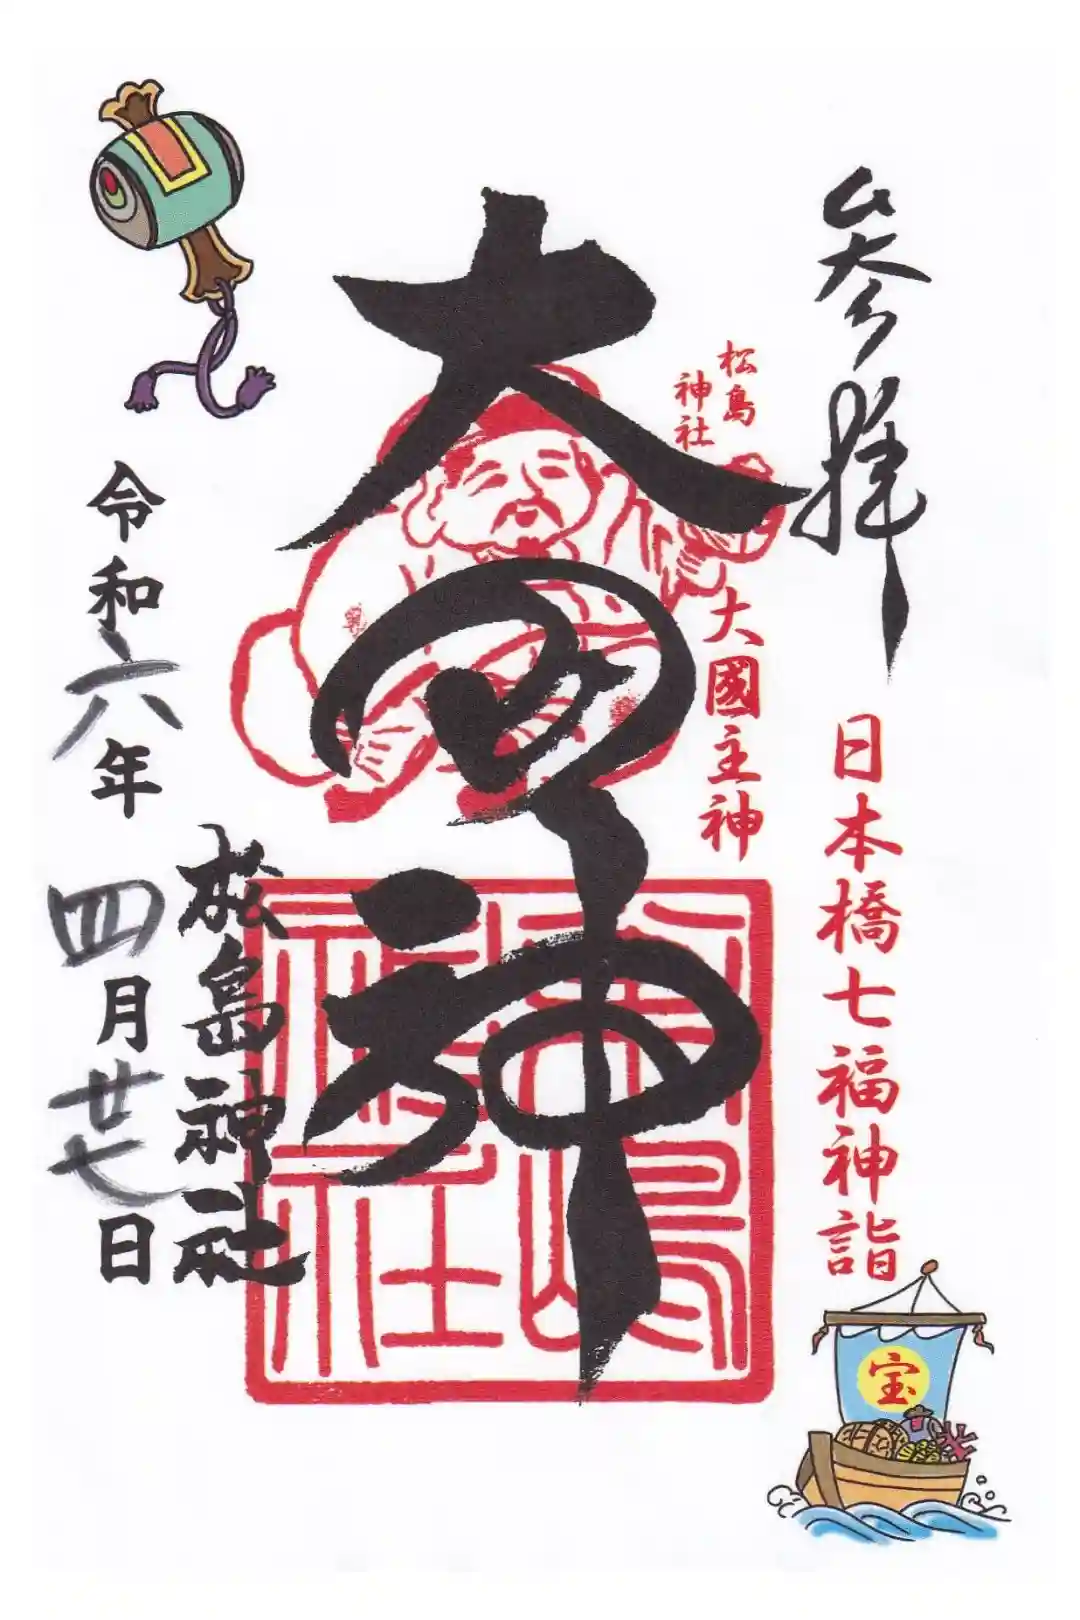 参拝
日本橋七福神詣
宝
松島
神社
大國主神
大国神
松島神社
令和六年四月廿七日